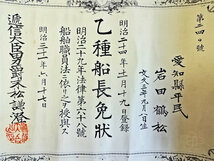 第二四〇號
愛知縣平民
岩田鶴松
文久三年九月一日生
乙種船長免狀
明治二十四年十一月九日登録
明治二十九年法律第六十八號
船舶職員法ニ依リ之ヲ授與ス
明治三十一年六月十七日
遞信大臣男爵末松謙澄